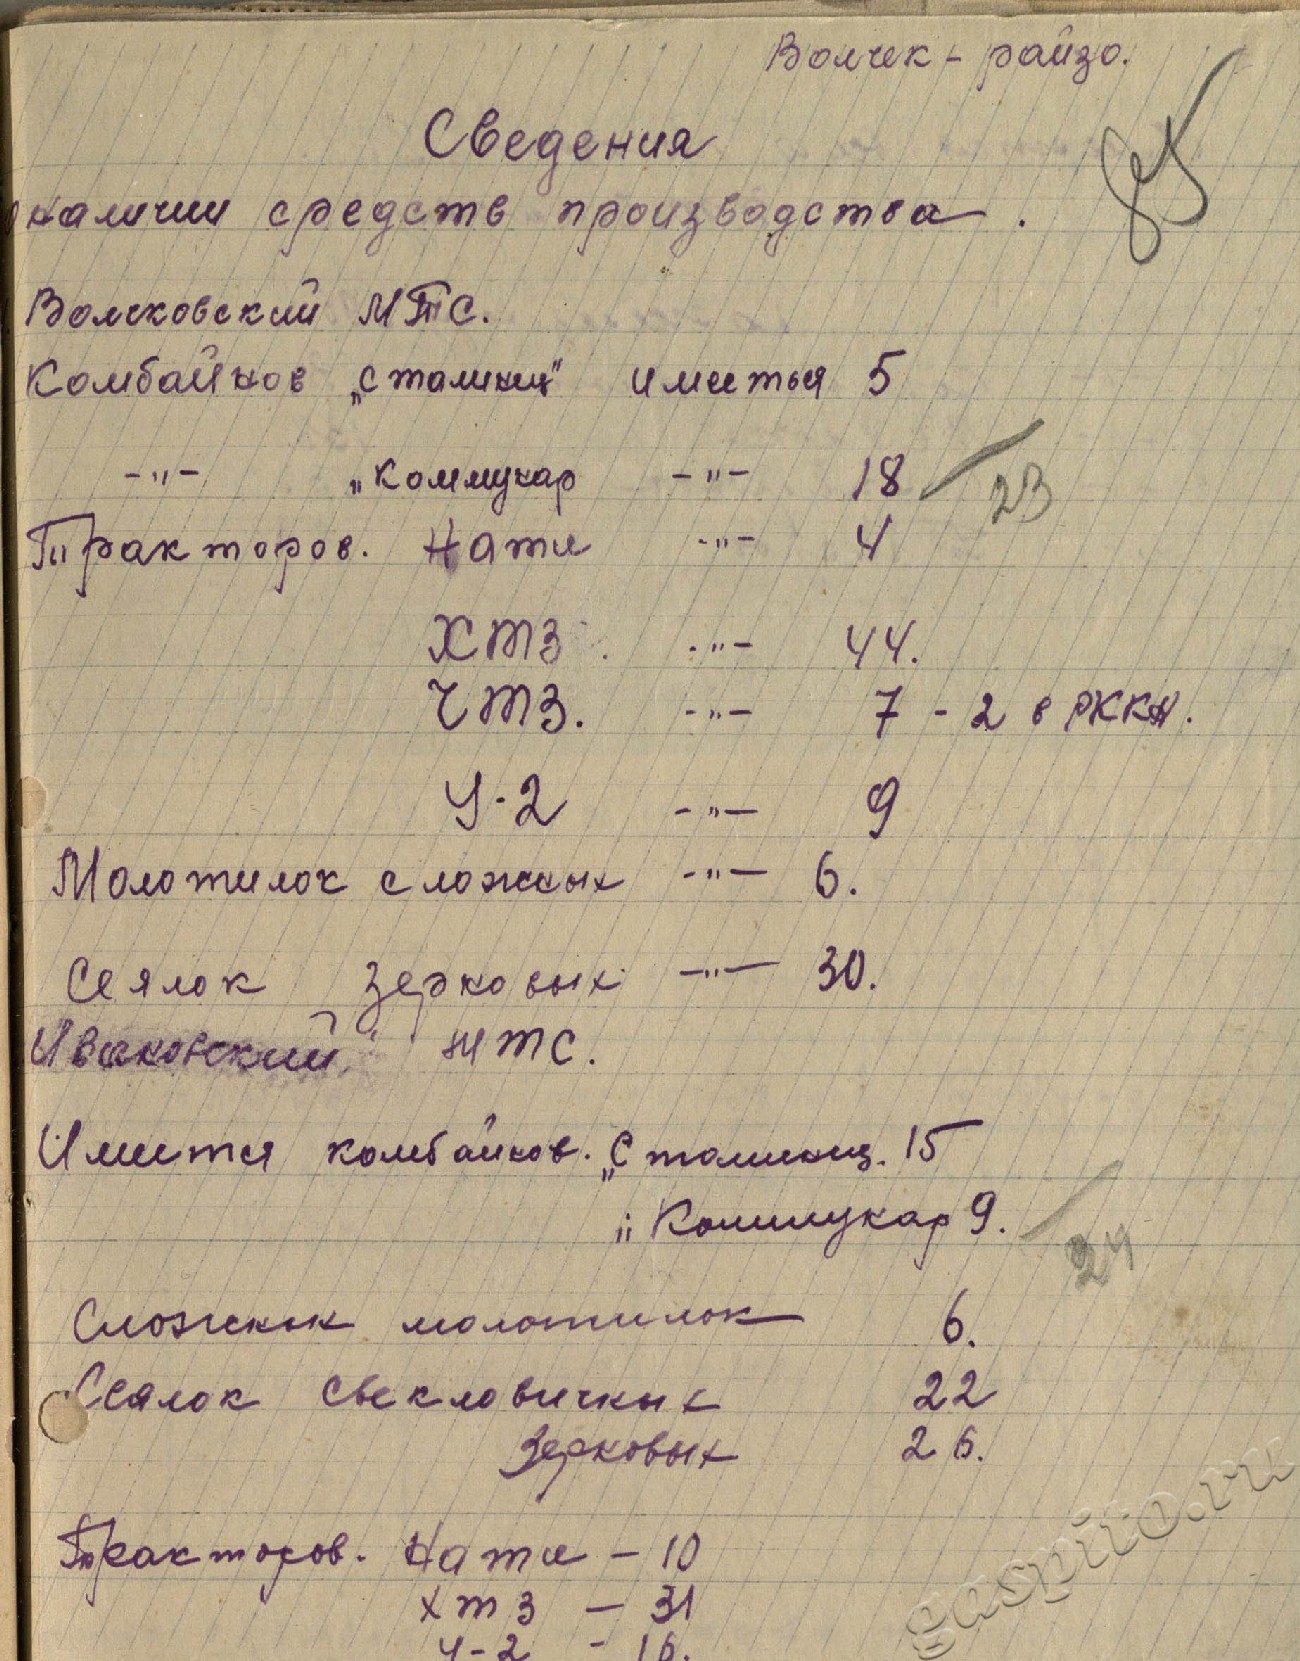 Волчек - райзо.
Сведения
о наличии средств производства.
Волчковский МТС.
Комбайнов „Сталинец" имеетья 5
-"- „Коммунар -"- 18
23
Тракторов. Нати -"- 4
ХТЗ -"- 44.
ЧТЗ. -"- 7 - 2 в РККА.
У-2 -"- 9
Молотилок сложных -"- 6.
Сеялок зерновых -"- 30.
Ивановский МТС.
Имеется комбайнов. „Сталинец. 15
„ Коммунар 9.
24
Сложных молотилок 6.
Сеялок свекловичных 22
Зерновых 26.
Тракторов. Нати - 10
ХТЗ - 31
У-2 - 16.
gaspito.ru